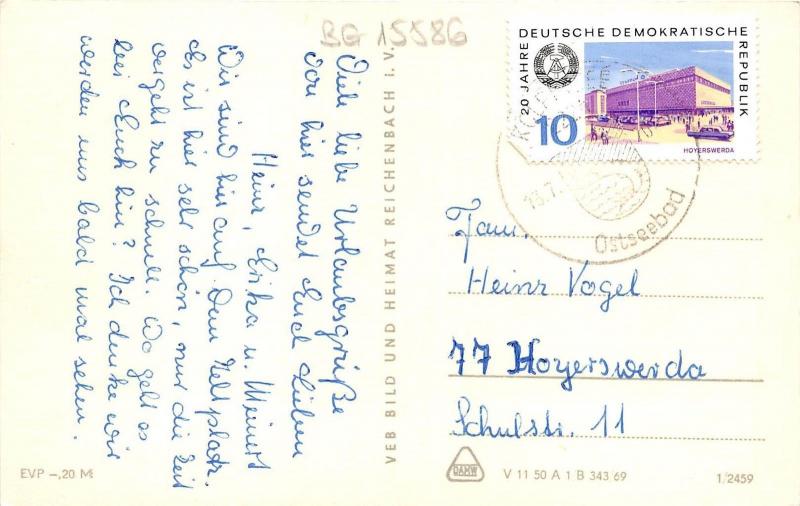 BG 15586
Viele liebe Urlaubsgrüße
von hier sendet Euch Lieben
Heinz, Erika u. Meinert
Wir sind hier auf dem Zeltplatz.
Es ist hier sehr schön, nur die Zeit
vergeht zu schnell. Wo geht es
bei Euch hin? Ich denke wir
werden uns bald mal sehen.
VEB BILD UND HEIMAT REICHENBACH i. V.
20 JAHRE DEUTSCHE DEMOKRATISCHE REPUBLIK
10
HOYERSWERDA
Ostseebad
Fam.
Heinz Vogel
77 Hoyerswerda
Schulstr. 11
EVP -,20 M
DAMW
V 11 50 A 1 B 343 69
1/2459